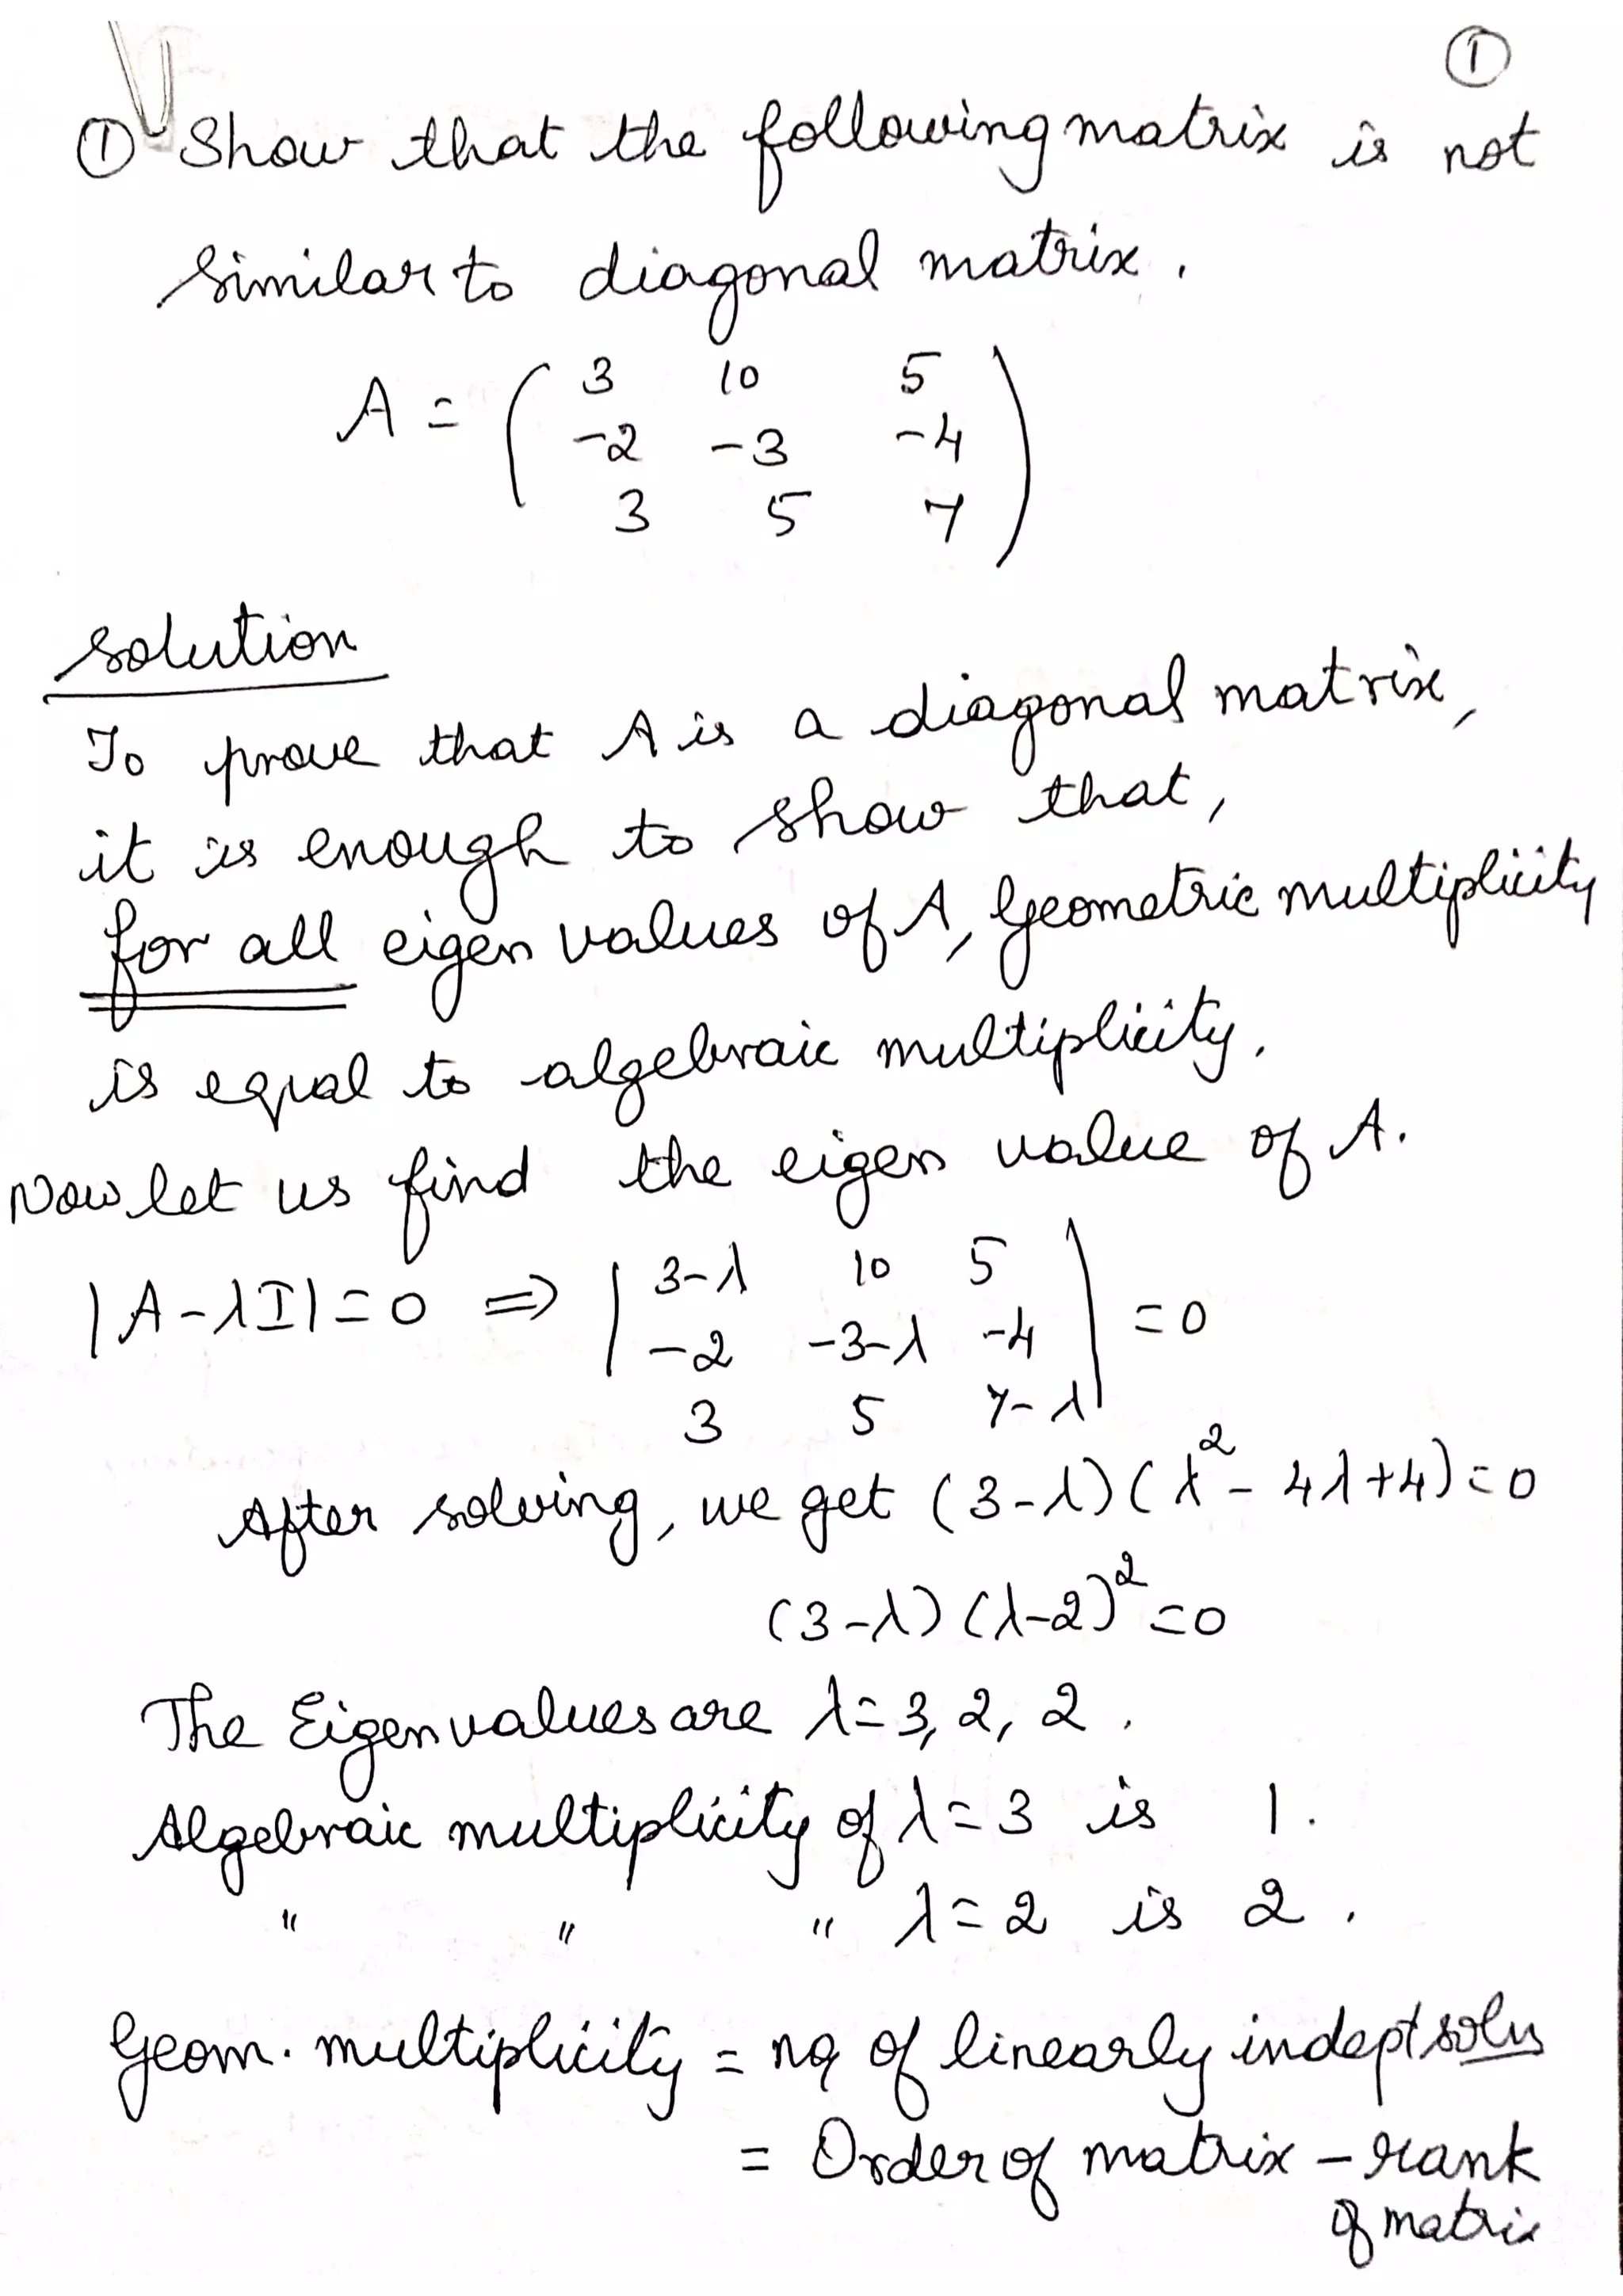 ①
① Show that the following matrix is not
similar to diagonal matrix.
A = ( 3 10 5
-2 -3 -4
3 5 7 )
Solution
To prove that A is a diagonal matrix,
it is enough to show that,
for all eigen values of A, Geometric multiplicity
is equal to algebraic multiplicity.
Now let us find the eigen value of A.
|A-λI|=0 ⇒ | 3-λ 10 5
-2 -3-λ -4 | =0
3 5 7-λ
After solving, we get (3-λ)(λ²-4λ+4)=0
(3-λ)(λ-2)²=0
The Eigen values are λ=3, 2, 2.
Algebraic multiplicity of λ=3 is 1.
" " " λ=2 is 2.
Geom. multiplicity = no of linearly indept solns
= Order of matrix - rank
of matrix